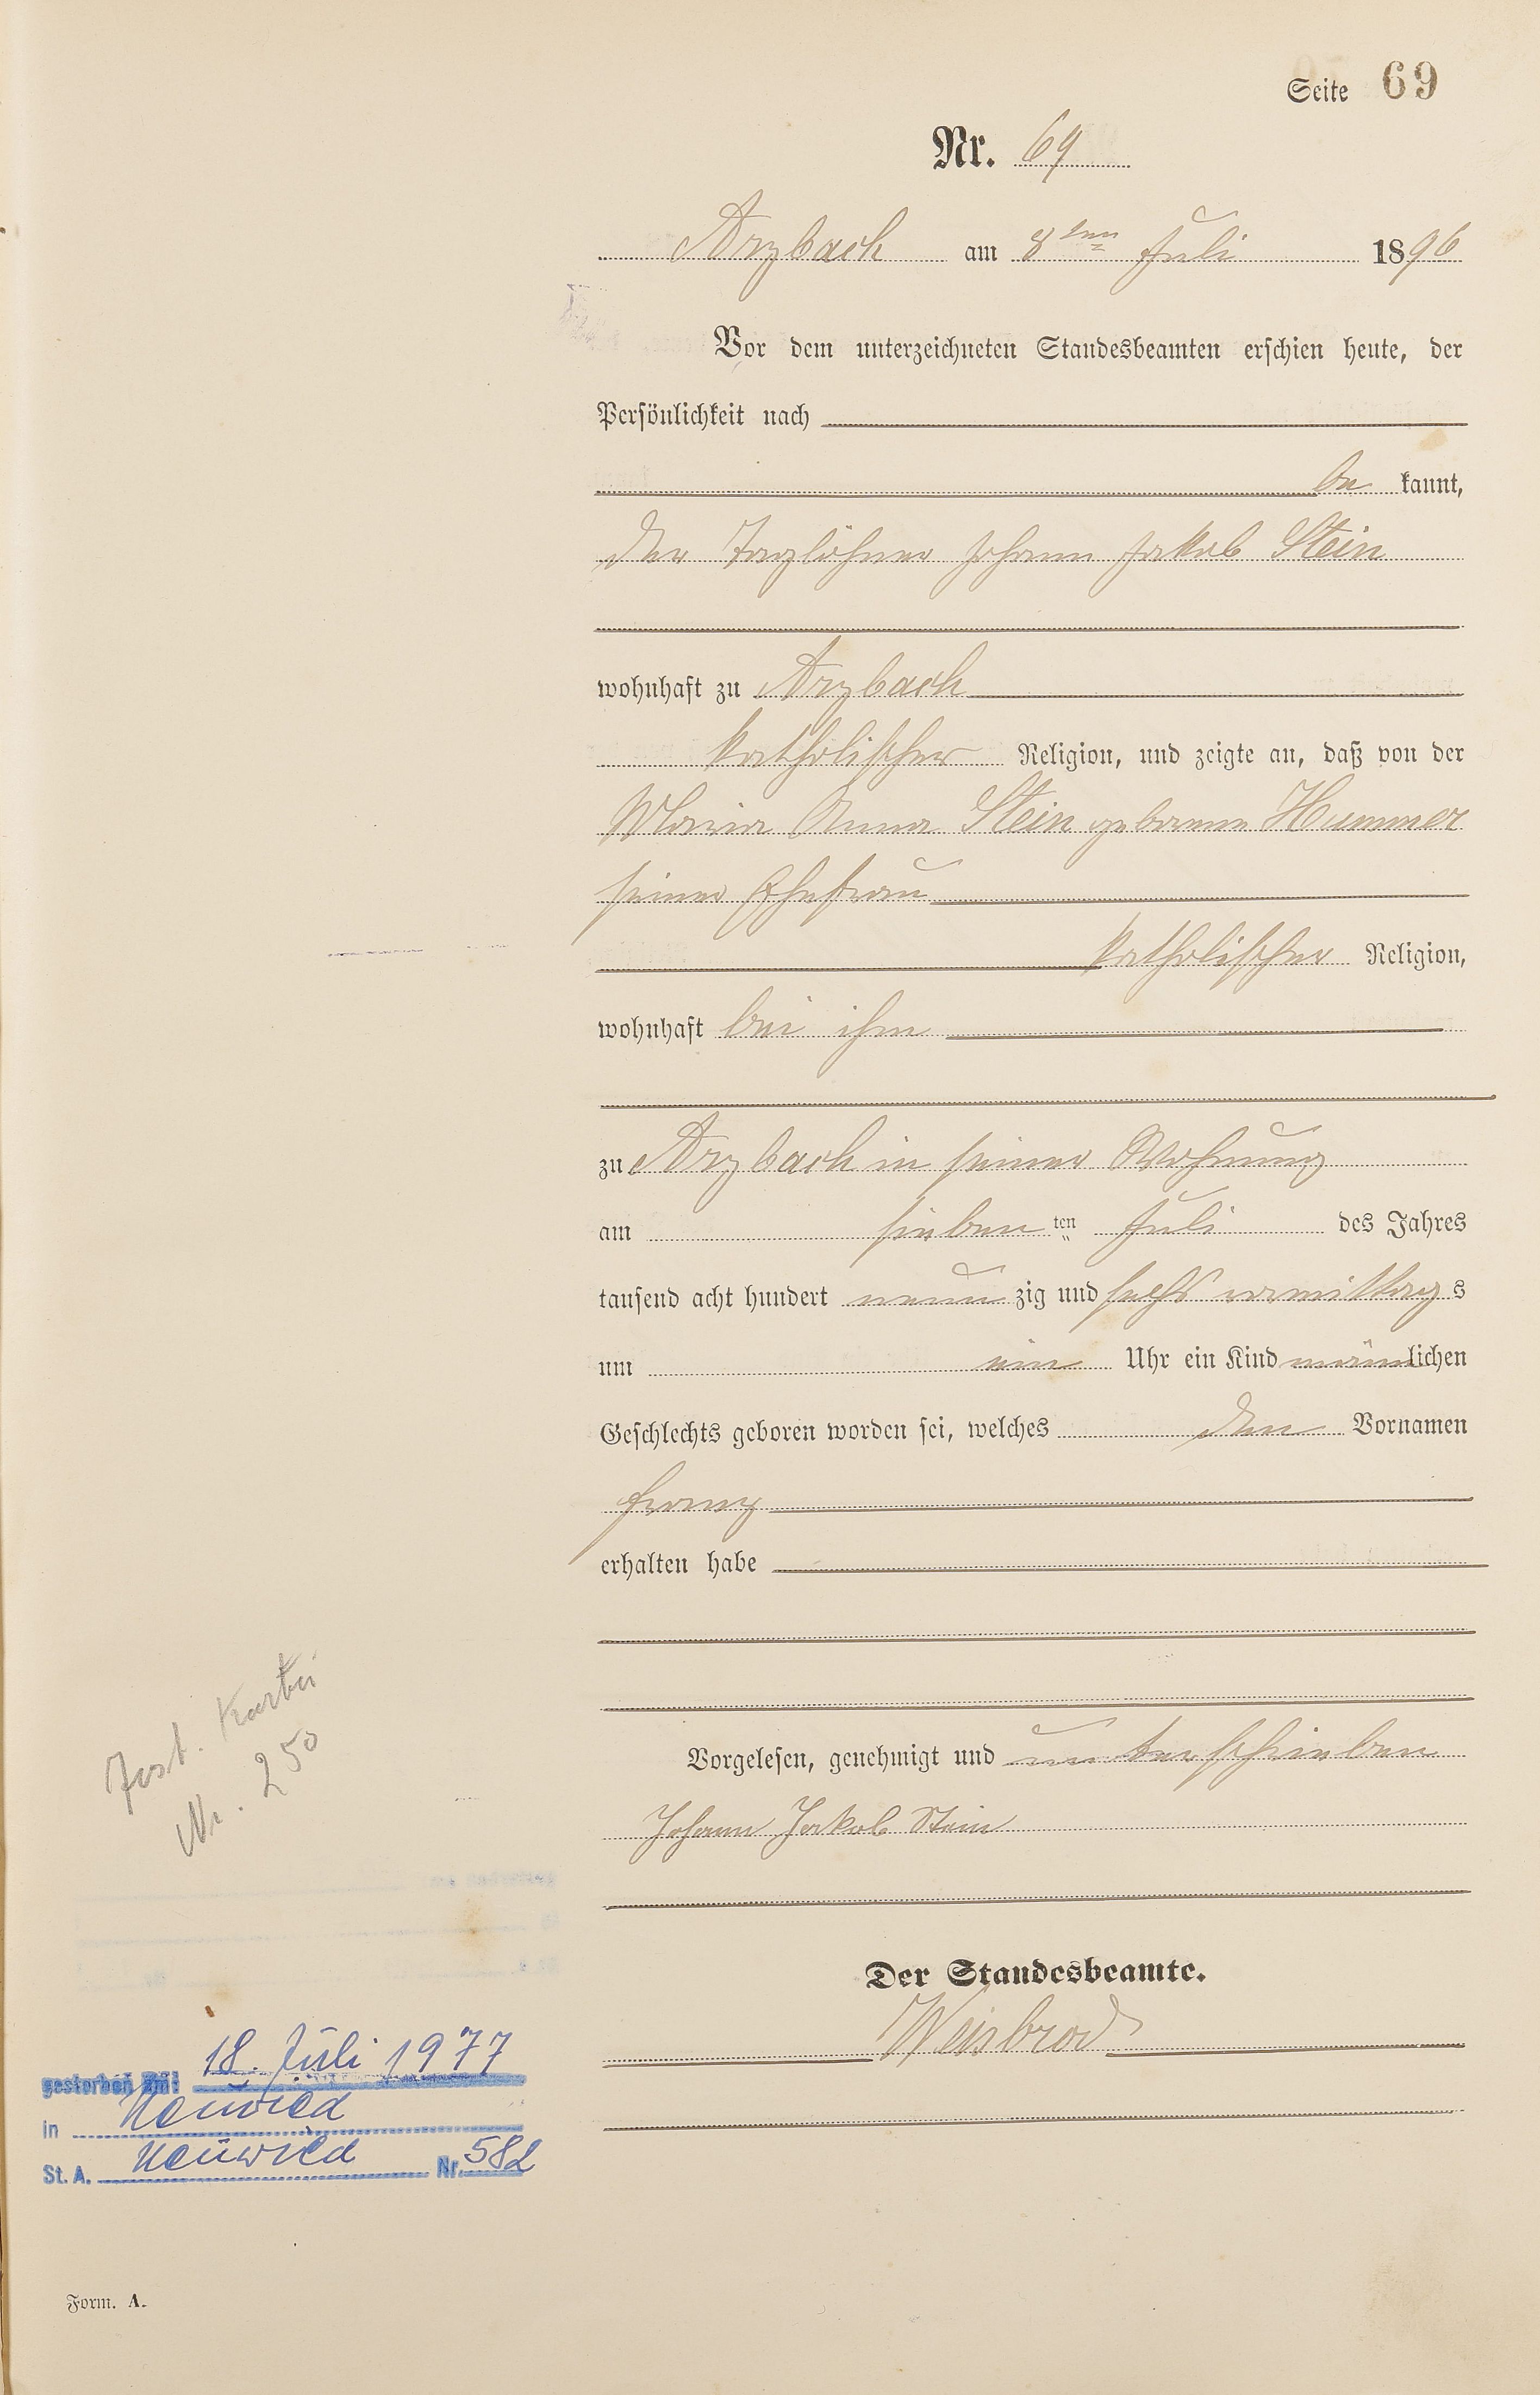 Seite 69
Nr. 69
Arzbach am 8ten Juli 1896
Vor dem unterzeichneten Standesbeamten erschien heute, der
Persönlichkeit nach
be kannt,
der Taglöhner Johann Jakob Stein
wohnhaft zu Arzbach
katholischer Religion, und zeigte an, daß von der
Maria Anna Stein geborenen Hummer
seiner Ehefrau
katholischer Religion,
wohnhaft bei ihm
zu Arzbach in seiner Wohnung
am sieben ten Juli des Jahres
tausend acht hundert neun zig und sechs vormittag s
um ein Uhr ein Kind männlichen
Geschlechts geboren worden sei, welches den Vornamen
Franz
erhalten habe
Vorgelesen, genehmigt und unterschrieben
Johann Jakob Stein
Der Standesbeamte.
Weisbrod
Kartei
Nr. 250
gestorben am: 18. Juli 1977
in Neuwied
St. A. Neuwied Nr. 582
Form. A.